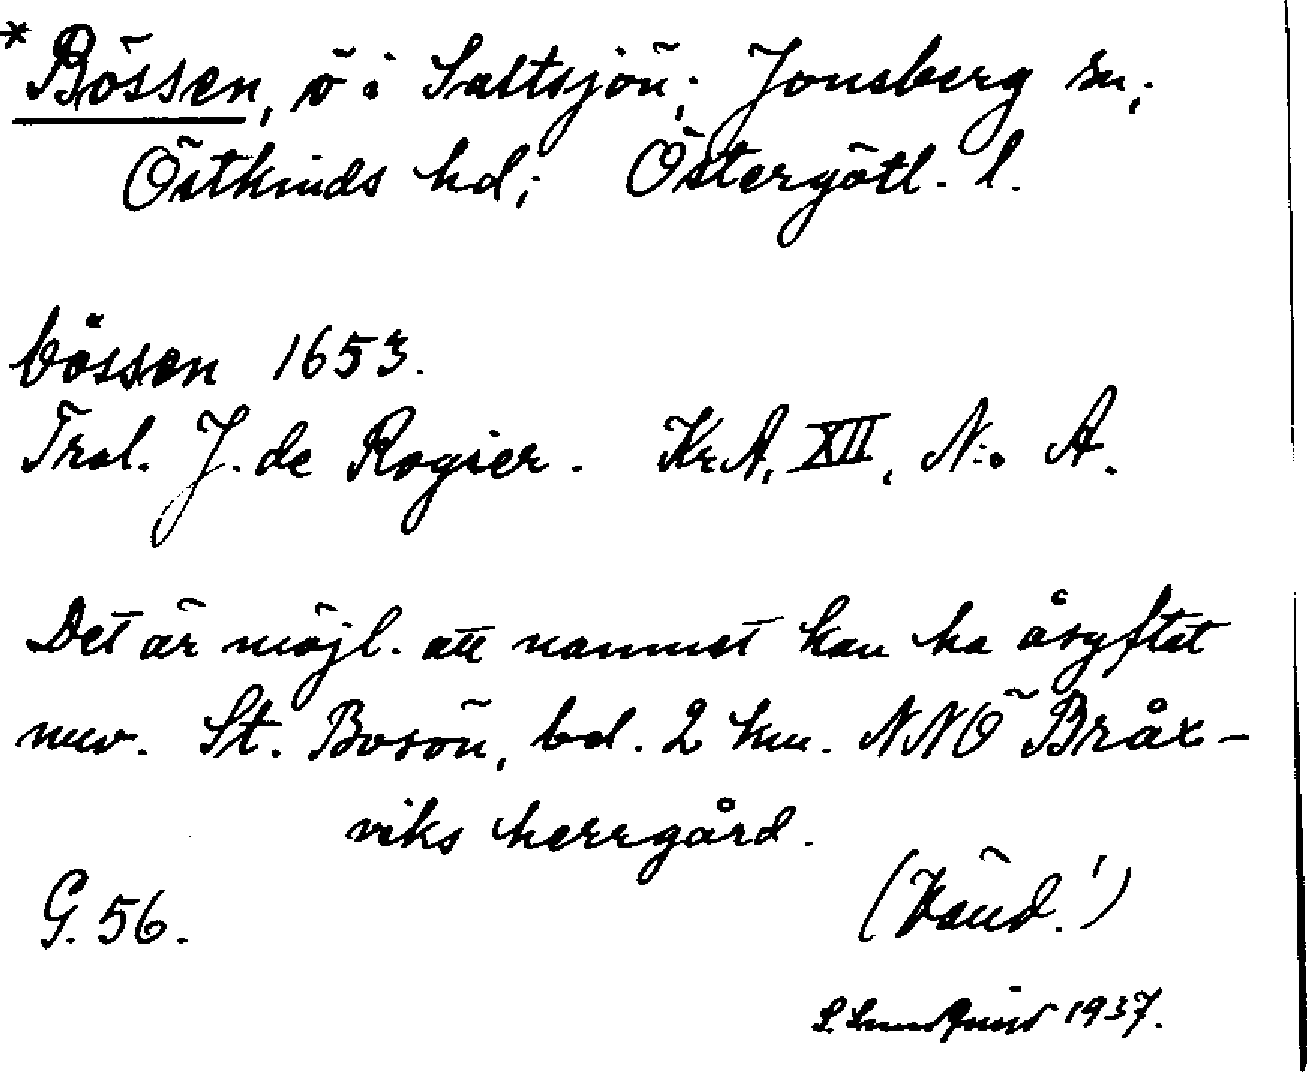 *Bössen, ö i Saltsjön; Jonsberg sn;
Östkinds hd; Östergötl. l.
bössen 1653.
Tral. J. de Rogier. KrA, XII, N:o A.
Det är möjl. att namnet kan ha åsyftat
nuv. St. Bosön, bd. 2 km. NNÖ Bråx-
viks herrgård.
G. 56.
(Vänd!)
S. Lundquist 1937.